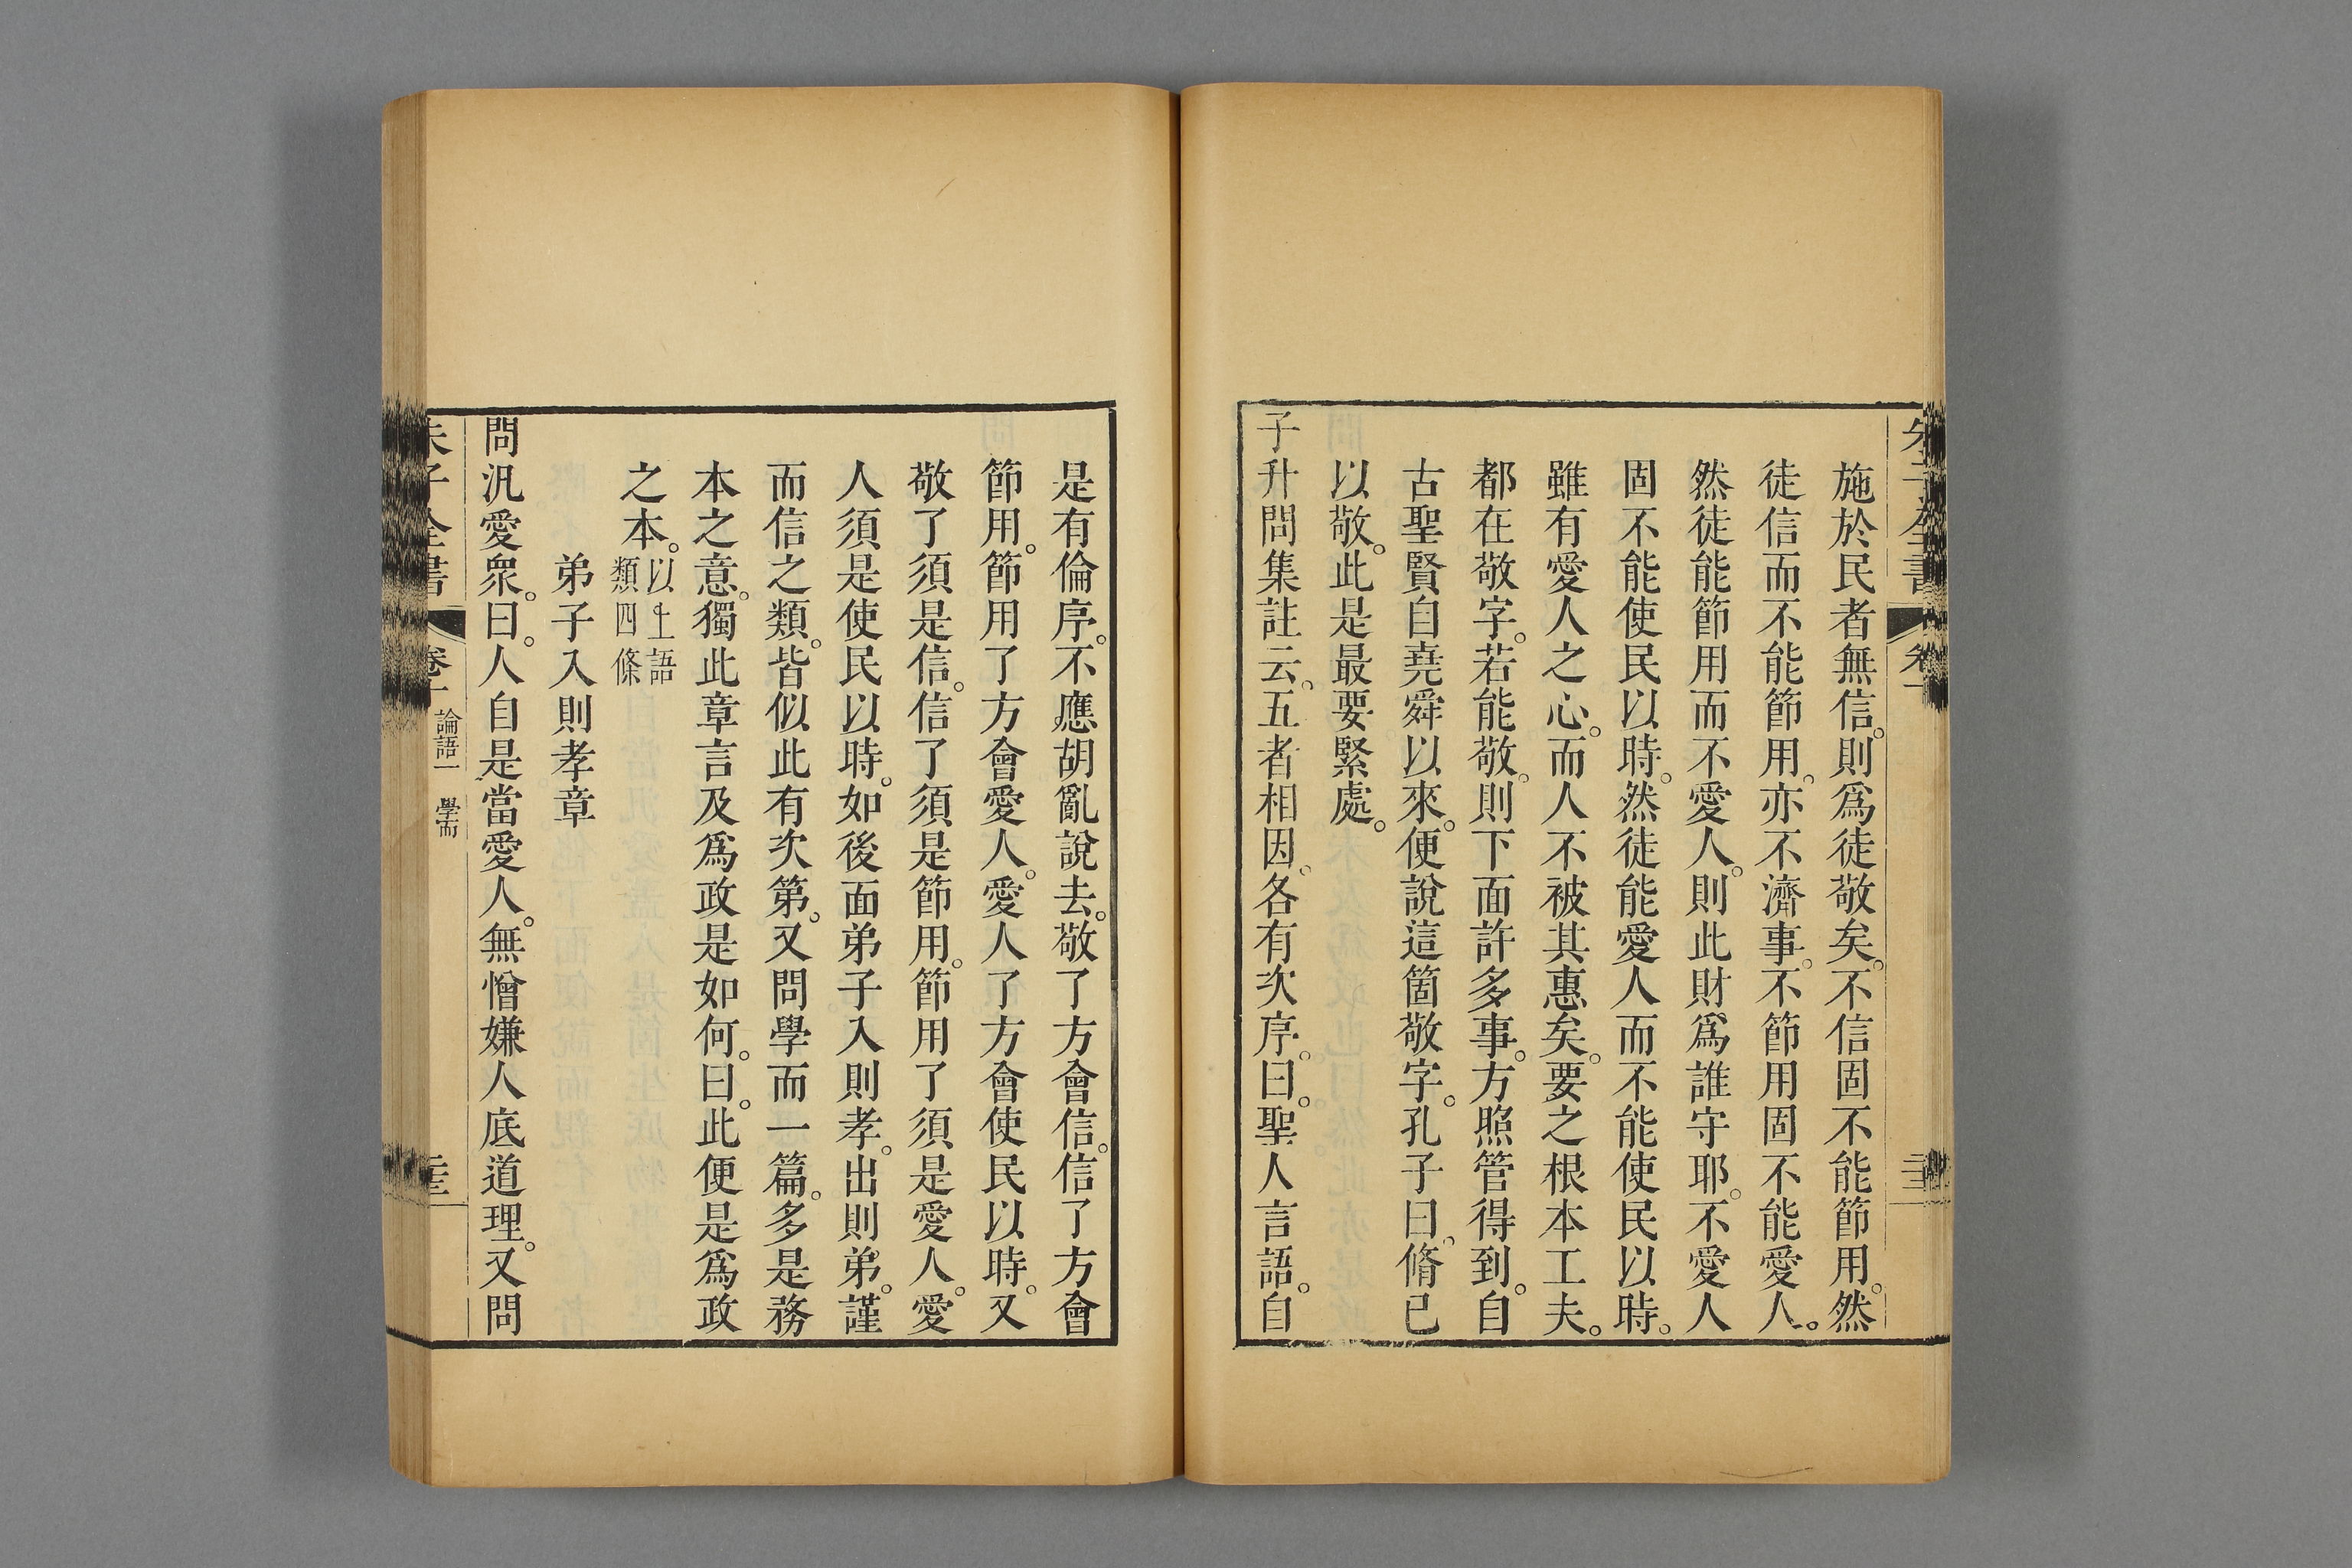 施於民者無信。則爲徒敬矣。不信固不能節用。然
徒信而不能節用。亦不濟事。不節用固不能愛人。
然徒能節用而不愛人。則此財爲誰守耶。不愛人
固不能使民以時。然徒能愛人而不能使民以時。
雖有愛人之心。而人不被其惠矣。要之根本工夫。
都在敬字。若能敬。則下面許多事。方照管得到。自
古聖賢自堯舜以來。便說這箇敬字。孔子曰。脩己
以敬。此是最要緊處。
子升問集註云。五者相因。各有次序。曰。聖人言語。自
是有倫序。不應胡亂說去。敬了方會信。信了方會
節用。節用了方會愛人。愛人了方會使民以時。又
敬了須是信。信了須是節用。節用了須是愛人。愛
人須是使民以時。如後面弟子入則孝。出則弟。謹
而信之類。皆似此有次第。又問學而一篇。多是務
本之意。獨此章言及爲政是如何。曰。此便是爲政
之本。以上語類四條
弟子入則孝章
問汎愛衆。曰。人自是當愛人。無憎嫌人底道理。又問
朱子全書 卷十 論語一 學而